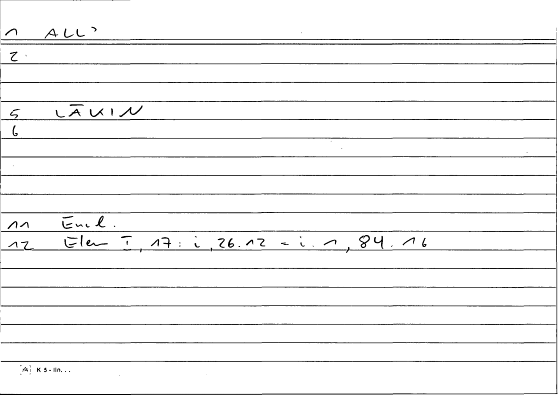 1 ALL'
2
5 LĀKIN
6
11 Eucl.
12 Elem I, 17 : i, 26.12 = i. 1, 84. 16
K S - lin...